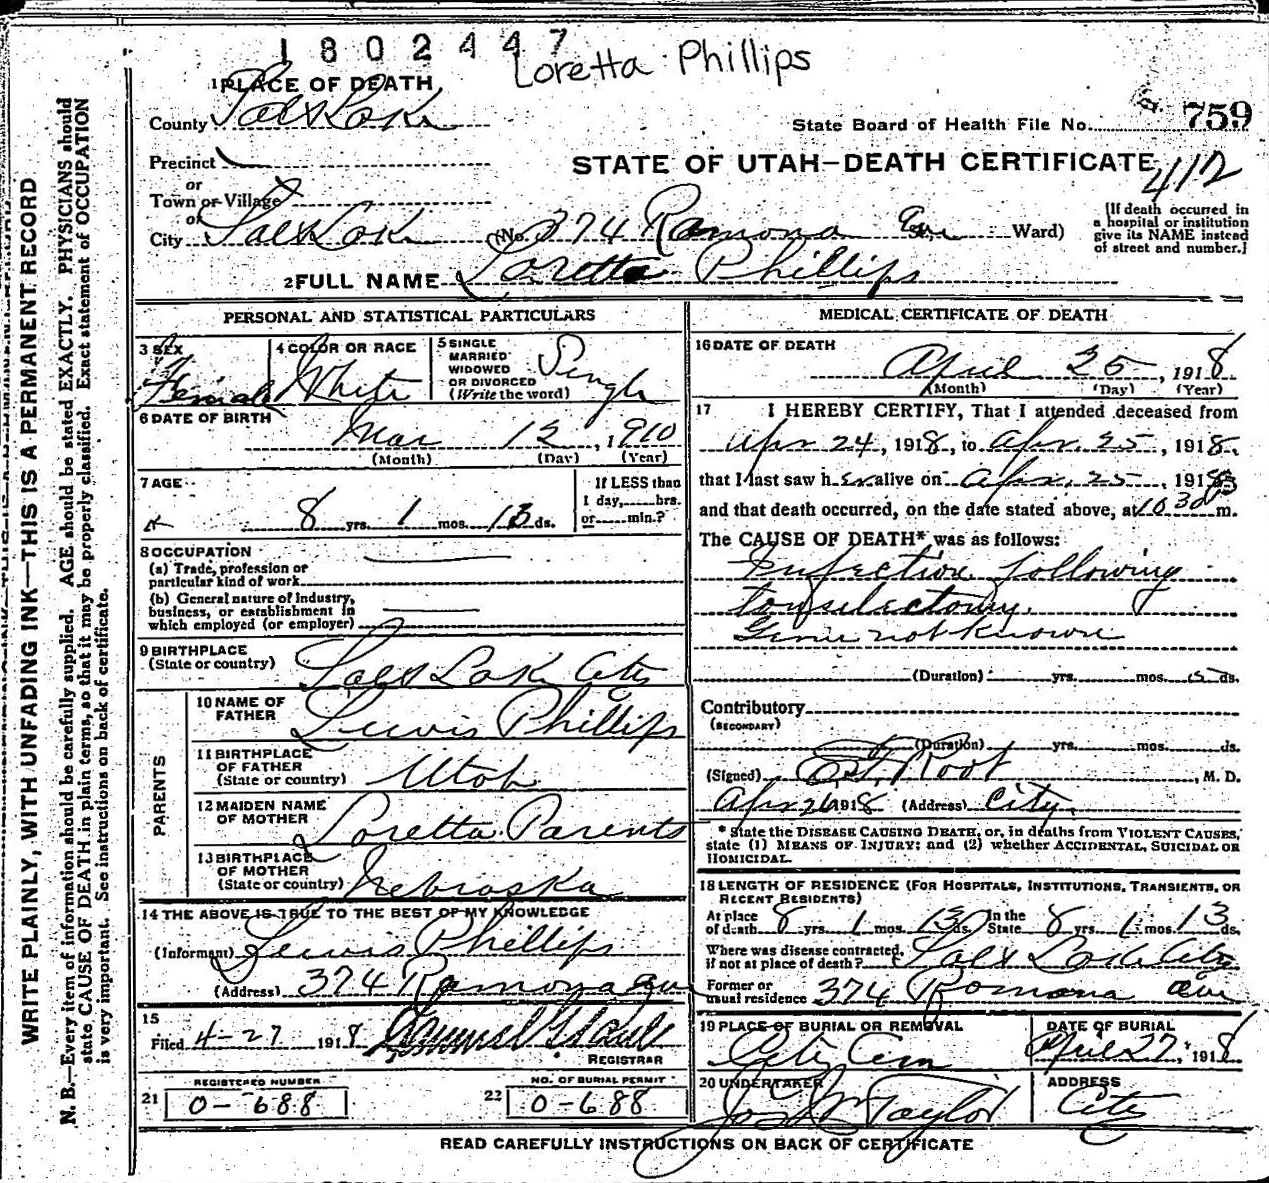 1802447
Loretta Phillips
1 PLACE OF DEATH
County Salt Lake
State Board of Health File No. 759
Precinct
STATE OF UTAH—DEATH CERTIFICATE
412
or
Town or Village
or
City Salt Lake (No. 374 Ramona Ave Ward)
[If death occurred in
a hospital or institution
give its NAME instead
of street and number.]
2 FULL NAME Loretta Phillips
PERSONAL AND STATISTICAL PARTICULARS
3 SEX
Female
4 COLOR OR RACE
White
5 SINGLE
MARRIED
WIDOWED
OR DIVORCED
(Write the word)
Single
6 DATE OF BIRTH
Mar 12, 1910
(Month) (Day) (Year)
7 AGE
8 yrs. 1 mos. 13 ds.
If LESS than
1 day, hrs.
or min.?
8 OCCUPATION
(a) Trade, profession or
particular kind of work
(b) General nature of industry,
business, or establishment in
which employed (or employer)
9 BIRTHPLACE
(State or country) Salt Lake City
PARENTS
10 NAME OF
FATHER Lewis Phillips
11 BIRTHPLACE
OF FATHER
(State or country) Utah
12 MAIDEN NAME
OF MOTHER Loretta Parents
13 BIRTHPLACE
OF MOTHER
(State or country) Nebraska
14 THE ABOVE IS TRUE TO THE BEST OF MY KNOWLEDGE
(Informant) Lewis Phillips
(Address) 374 Ramona Ave
15
Filed 4-27 1918
REGISTRAR
REGISTERED NUMBER
21 0-688
NO. OF BURIAL PERMIT
22 0-688
MEDICAL CERTIFICATE OF DEATH
16 DATE OF DEATH
April 25, 1918
(Month) (Day) (Year)
17 I HEREBY CERTIFY, That I attended deceased from
Apr 24, 1918, to Apr. 25, 1918,
that I last saw her alive on Apr. 25, 1918
and that death occurred, on the date stated above, at 10 30 P m.
The CAUSE OF DEATH* was as follows:
Infection following
tonsilectomy.
Germ not known
(Duration) yrs. mos. ds.
Contributory
(SECONDARY)
(Duration) yrs. mos. ds.
(Signed) Root, M. D.
Apr 26 1918 (Address) City.
* State the DISEASE CAUSING DEATH, or, in deaths from VIOLENT CAUSES,
state (1) MEANS OF INJURY; and (2) whether ACCIDENTAL, SUICIDAL OR
HOMICIDAL.
18 LENGTH OF RESIDENCE (FOR HOSPITALS, INSTITUTIONS, TRANSIENTS, OR
RECENT RESIDENTS)
At place
of death 8 yrs. 1 mos. 13 ds. In the
State 8 yrs. 1 mos. 13 ds.
Where was disease contracted,
if not at place of death? Salt Lake City
Former or
usual residence 374 Ramona Ave
19 PLACE OF BURIAL OR REMOVAL
City Cem
DATE OF BURIAL
April 27, 1918
20 UNDERTAKER
Jos Wm Taylor
ADDRESS
City
READ CAREFULLY INSTRUCTIONS ON BACK OF CERTIFICATE
WRITE PLAINLY, WITH UNFADING INK—THIS IS A PERMANENT RECORD
N. B.—Every item of information should be carefully supplied. AGE should be stated EXACTLY. PHYSICIANS should
state CAUSE OF DEATH in plain terms, so that it may be properly classified. Exact statement of OCCUPATION
is very important. See instructions on back of certificate.